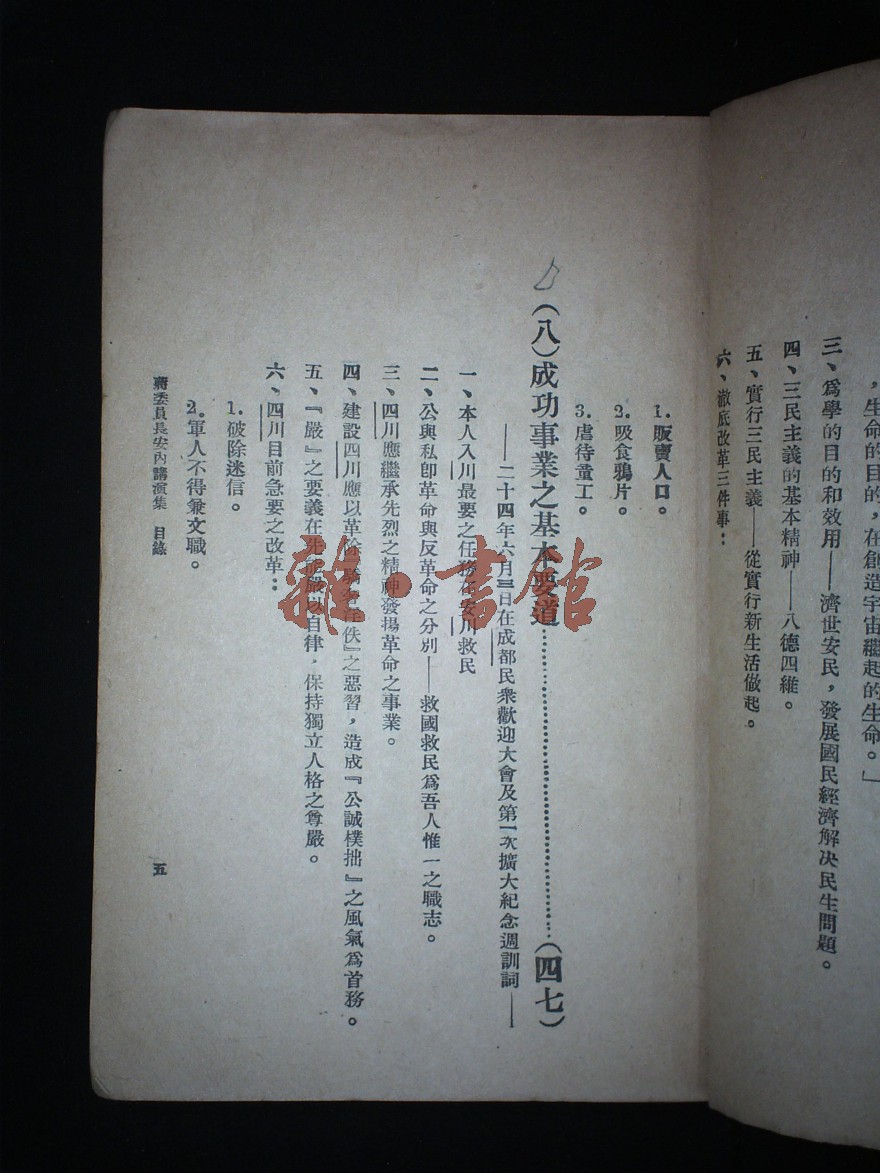 ，生命的目的，在創造宇宙繼起的生命。」
三、爲學的目的和效用——濟世安民，發展國民經濟解决民生問題。
四、三民主義的基本精神——八德四維。
五、實行三民主義——從實行新生活做起。
六、澈底改革三件事：
1. 販賣人口。
2. 吸食鴉片。
3. 虐待童工。
（八）成功事業之基本要道……（四七）
——二十四年六月三日在成都民衆歡迎大會及第一次擴大紀念週訓詞——
一、本人入川最要之任務在安川救民
二、公與私卽革命與反革命之分別——救國救民爲吾人惟一之職志。
三、四川應繼承先烈之精神發揚革命之事業。
四、建設四川應以革除『驕奢佚』之惡習，造成『公誠樸拙』之風氣爲首務。
五、『嚴』之要義在先能嚴以自律，保持獨立人格之尊嚴。
六、四川目前急要之改革：
1. 破除迷信。
2. 軍人不得兼文職。
蔣委員長安內講演集 目錄
五
雜·書館